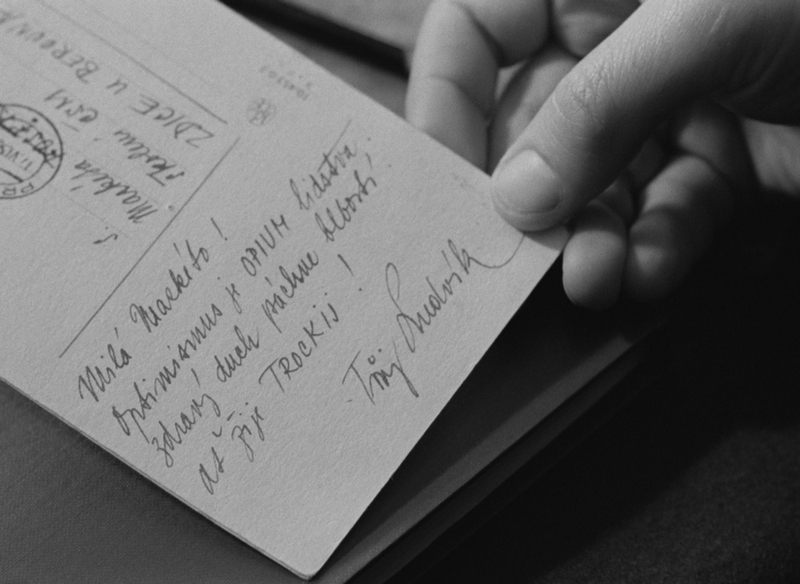 Milá Markéto!
Optimismus je OPIUM lidstva.
zdravý duch páchne blbostí.
ať žije TROCKIJ!
Tvůj Ludvík
S.
Markéta
školení ČSM
ZDICE U BEROUNA